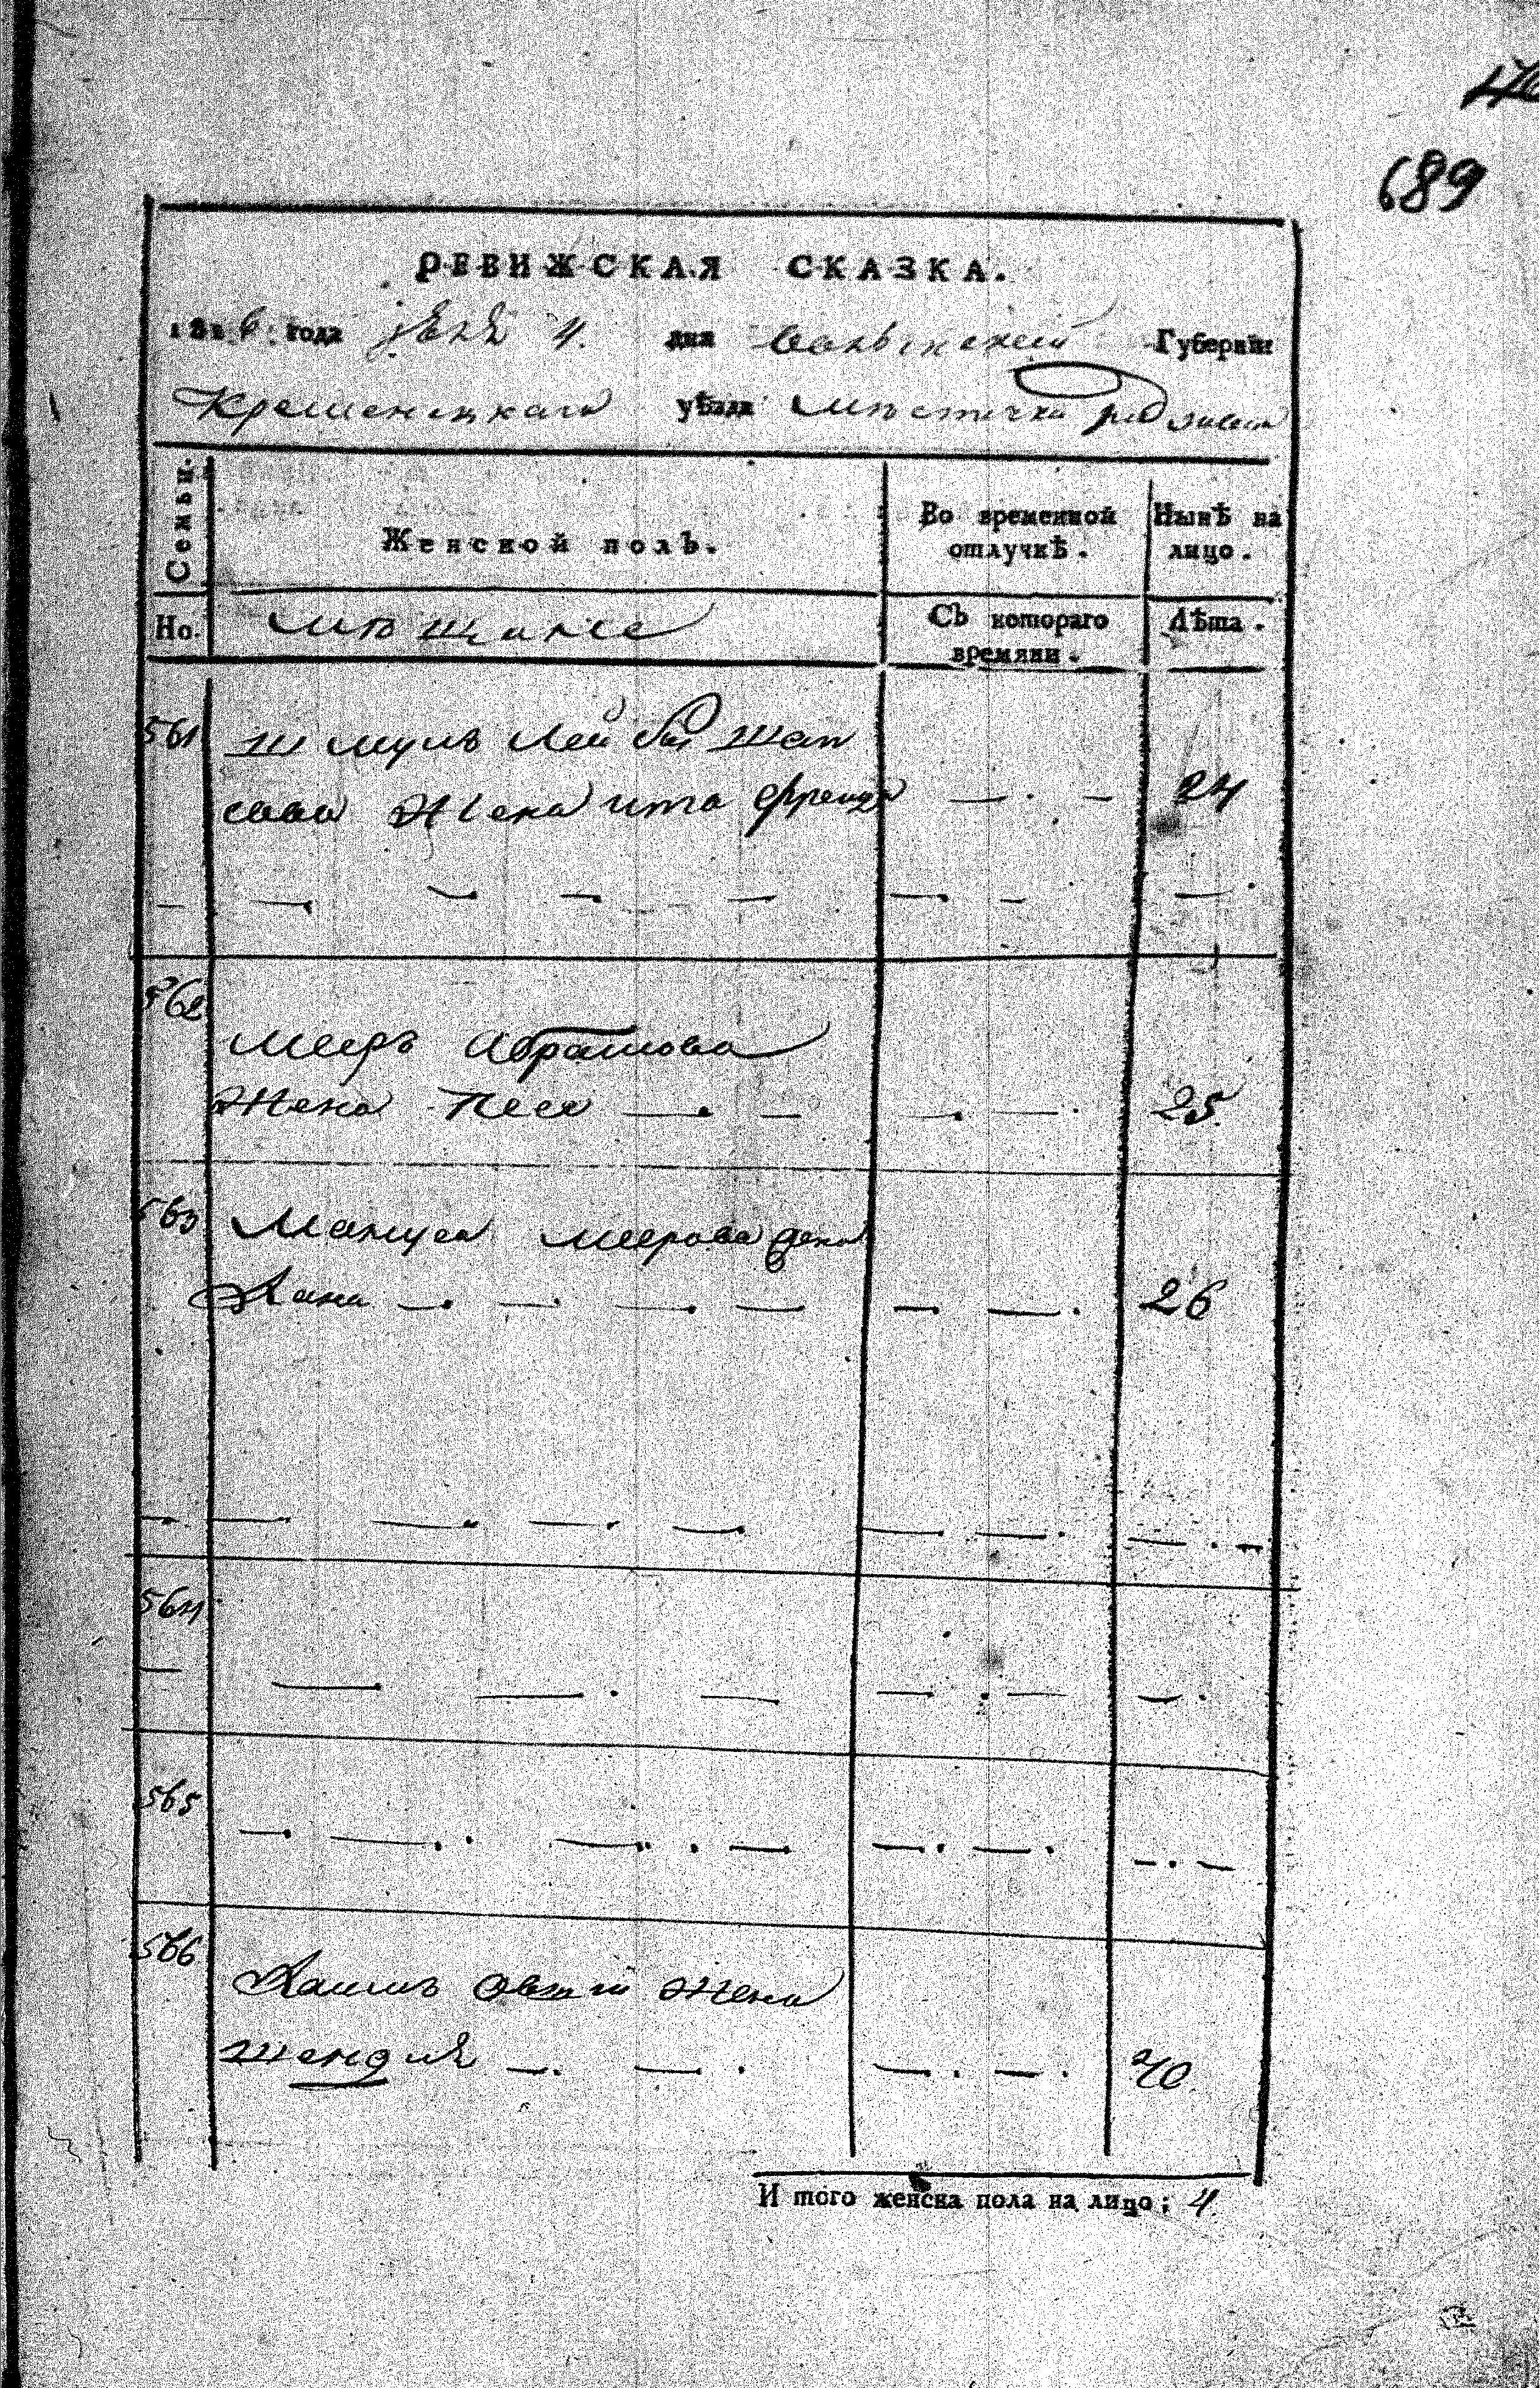 689
РЕВИЖСКАЯ СКАЗКА.
1816 года 4. дня Волынской Губерніи
Кременецкаго уѣзда мѣстечка
Семьи. Женской полъ. Во временной отлучкѣ. Нынѣ на лицо.
Но. мѣщане Съ котораго времяни. Лѣта.
561 Шмуль Лейбы Шап
сова Жена ита Фрейда — . — 24
— — — — — — — — .
562
Мееръ Абрамова
Жена Песя — . — — . — . 25
563 Мануса Меерова Жена
Хана — . — . — . — — . — . 26
— . — . — . — . — . — . — . — . —
564
— — . — . — — . — — .
565
— . — . . — . . — . — . — . — . —
566
Хаимъ Жена
Шендля — . — . — . — . 40
И того женска пола на лицо; 4.